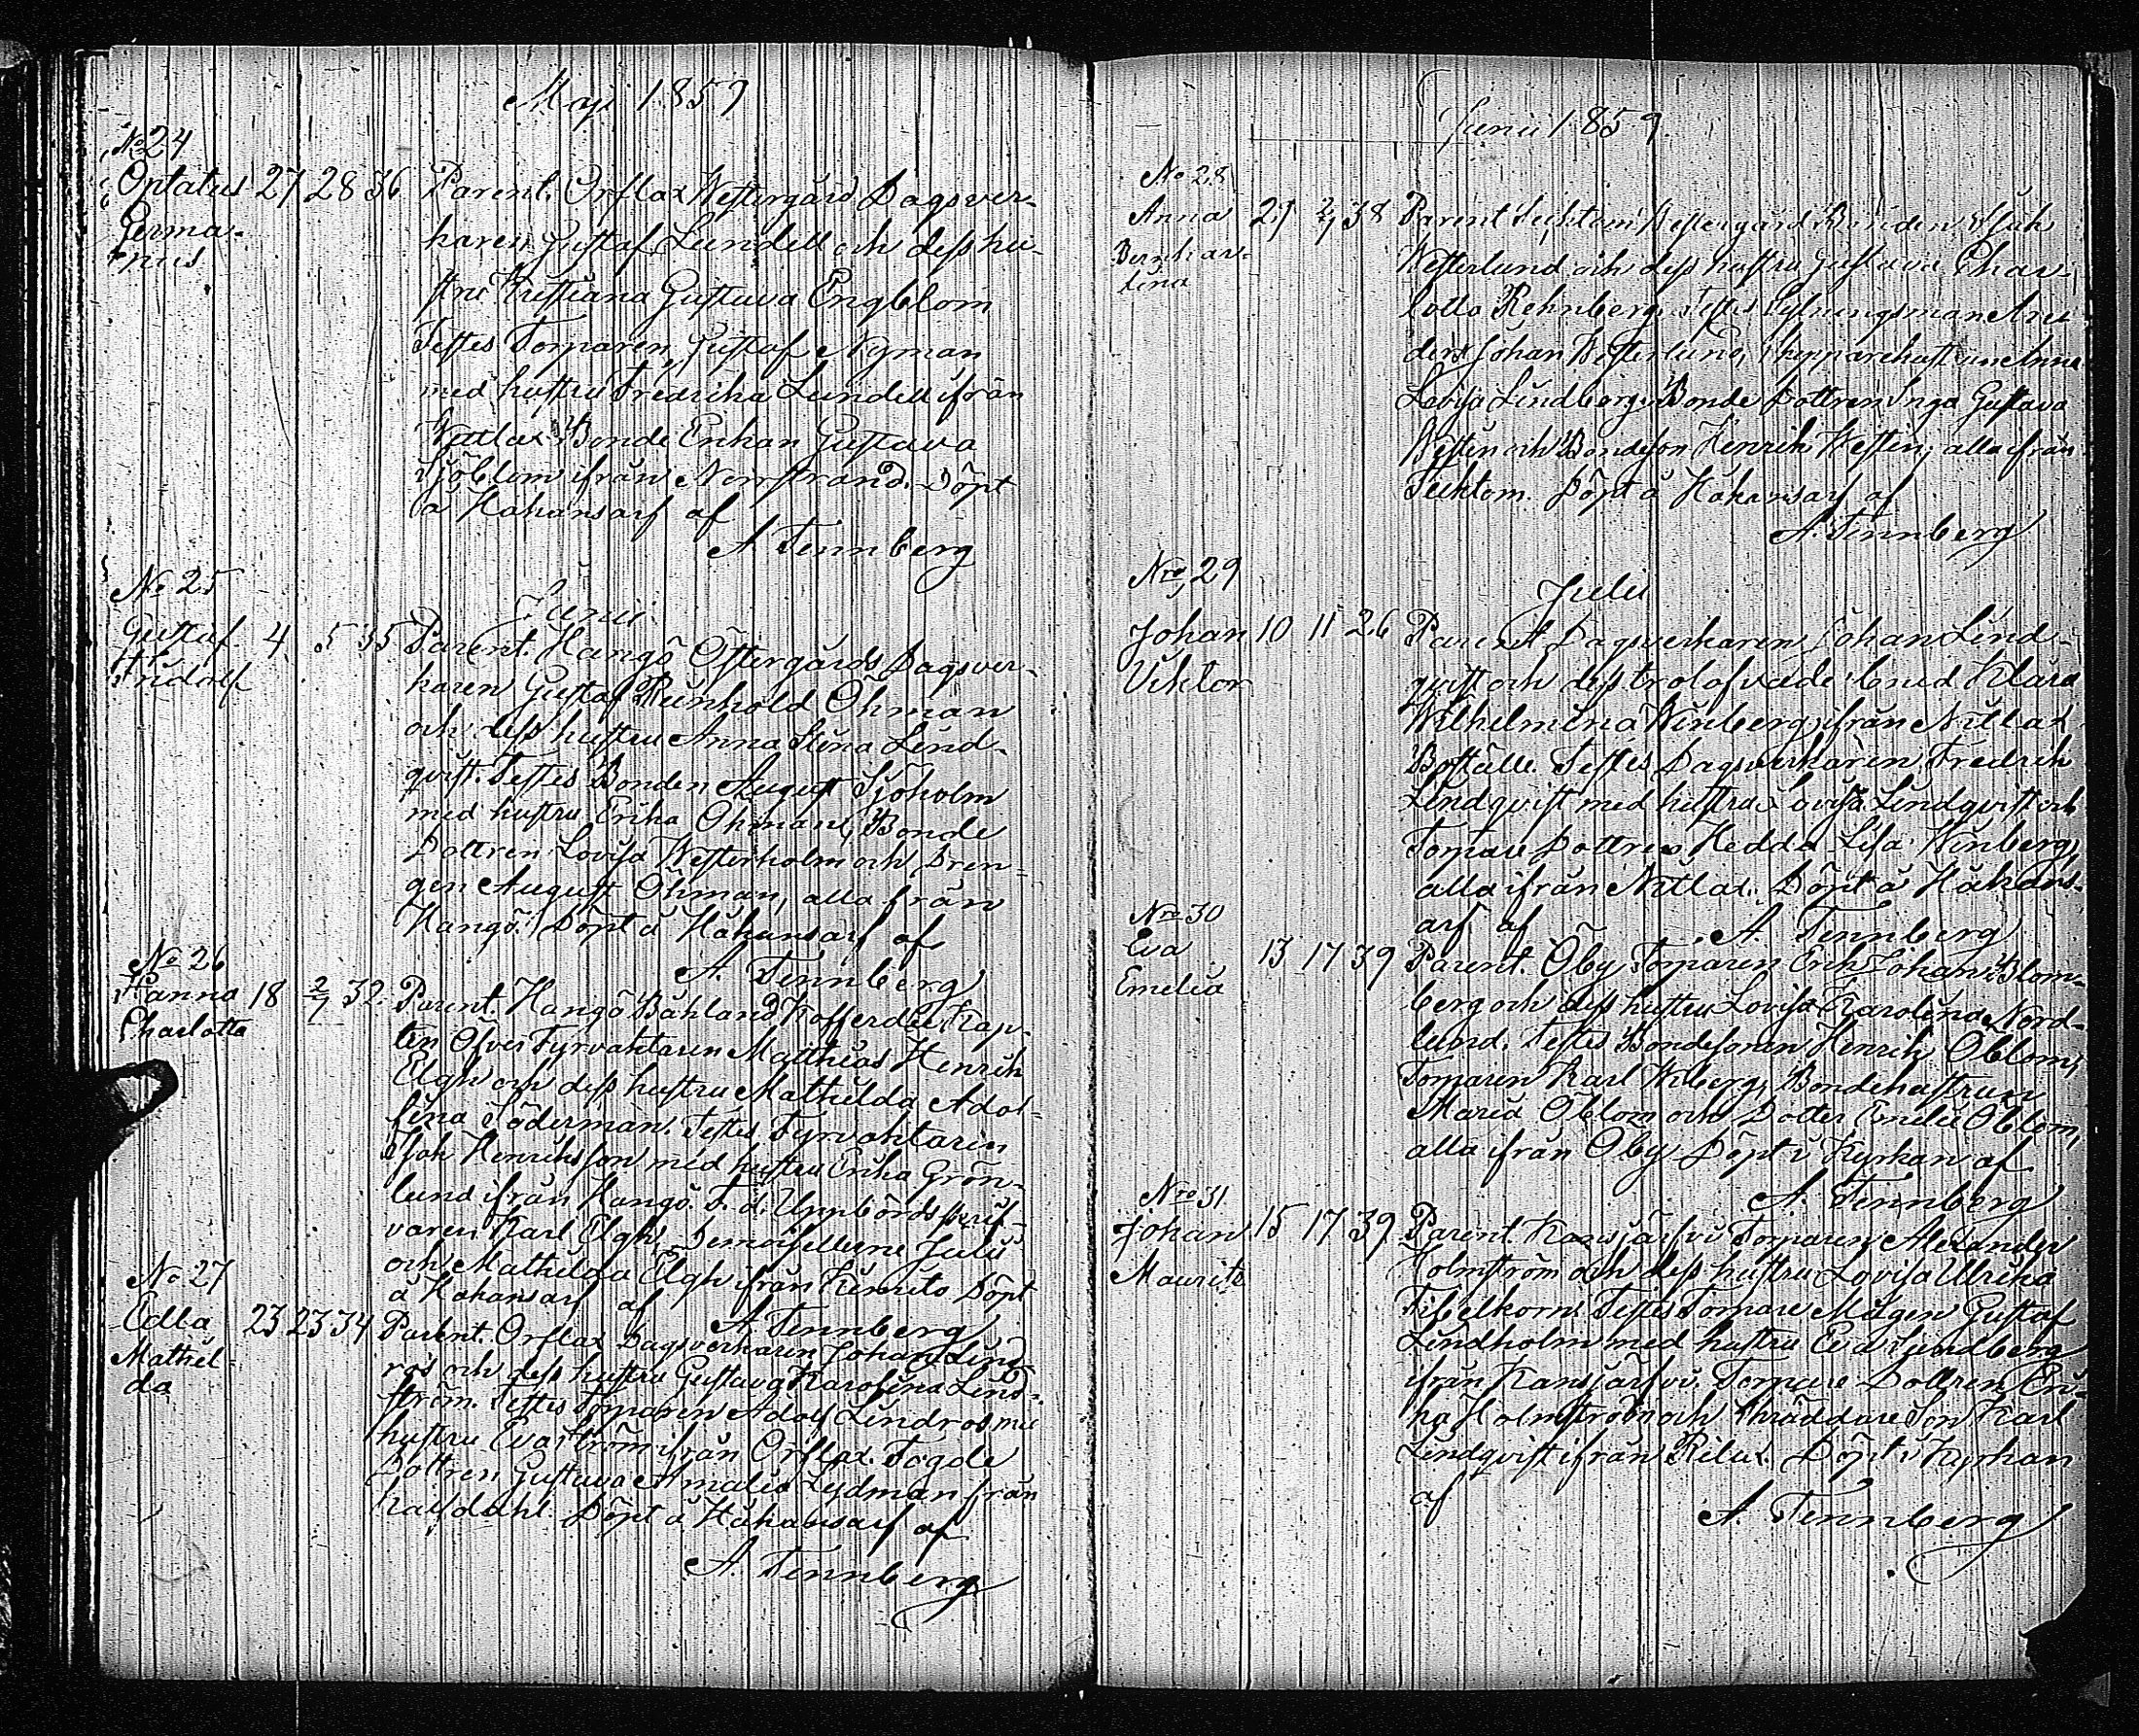 Maji 1859
No 24
Optatus 27 28 36 Parent. Orslax Westergård Dagsver-
Germa- karen Gustaf Lundell och dess hu-
nus
stru Kristiana Gustava Engblom
Testes Torparen, Gustaf Nyman
med hustru Fredrika Lundell ifrån
Wittlax Bonde Enkan Gustava
Sjöblom ifrån Norrstrand. Döpt
å Håkansarf af
A Tennberg
No 25
Junii
Gustaf 4 5 35 Parent. Hangö Östergårds Dagsver-
Fridolf karen Gustaf Reinhold Öhman
och dess hustru Anna Stina Lind-
qvist. Testes Bonden August Sjöholm
med hustru Erika Öhman, Bonde
Dottren Lovisa Westerholm och Dren-
gen August Öhman, alla från
Hangö. Döpt å Håkansarf af
A. Tennberg
No 26
Hanna 18 2/7 32. Parent. Hangö Båkland Kofferdie Kap-
Charlotta ten Öfver Fyrvaktaren Matthias Henrik
Elgh och dess hustru Mathilda Adol-
fina Söderman. Testes Fyrvaktaren
Isak Henriksson med hustru Erika Grön-
lund ifrån Hangö. F. d. Uppbördsskrif-
varen Karl Elgh, Demoisellerne Julie
och Mathilda Elgh ifrån Kimito Döpt
å Håkansarf af
A Tennberg
No 27
Edla 23 23 34 Parent. Orslax Dagsverkaren Johan Lind-
Mathil- ros och dess hustru Gustava Karolina Lind-
da ström. Testes Torparen Adolf Lindros med
hustru Eva Ström ifrån Orslax. Fogde
Dottren Gustava Amalia Lydman från
Kalfdahl. Döpt å Håkansarf af
A. Tennberg
Junii 1859
No 28
Anna 29 2/7 38 Parent Tecktom Westergård Bonden Isak
Bernhar- Westerlund och dess hustru Gustava Char-
dina lotta Rehnberg. Testes
Johan Westerlund, Skepparehustrun Anna
Lovisa Lindberg, Bonde Dottren Inga Gustava
Westen och Bondeson Henrik Westin, alla ifrån
Tecktom. Döpt å Håkansarf af
A. Tennberg
Nro 29
Julii
Johan 10 11 26 Parent Dagsverkaren Johan Lind-
Viktor qvist och dess trolofvade brud Klara
Wilhelmina Winberg, ifrån Nitlax
Boställe. Testes Dagsverkaren Fredrik
Lindqvist med hustru Lovisa Lindqvist och
Torpare Dottren Hedda Lisa Winberg,
alla ifrån Nitlax. Döpt å Håkans-
arf af
A. Tennberg
Nro 30
Eva 13 17 39 Parent. Öby Torparen Erik Johan Blom-
Emelia berg och dess hustru Lovisa Karolina Nord-
lund. Testes Bondesonen Henrik Öblom,
Torparen Karl Wiberg, Bondehustrun
Maria Öblom och Dotter Emelie Öblom,
alla ifrån Öby Döpt i Kyrkan af
A. Tennberg
Nro 31
Johan 15 17 39 Parent. Kansjärfvi Torparen Alexander
Mauritz Holmström och dess hustru Lovisa Ulrika
Fibelkorn. Testes Torpare Mågen Gustaf
Lindholm med hustru Eva Sundberg
ifrån Kansjärfvi. Torpare Dottren Eri-
ka Holmström och Skräddare Son Karl
Lindqvist ifrån Rilax. Döpt i Kyrkan
af
A. Tennberg